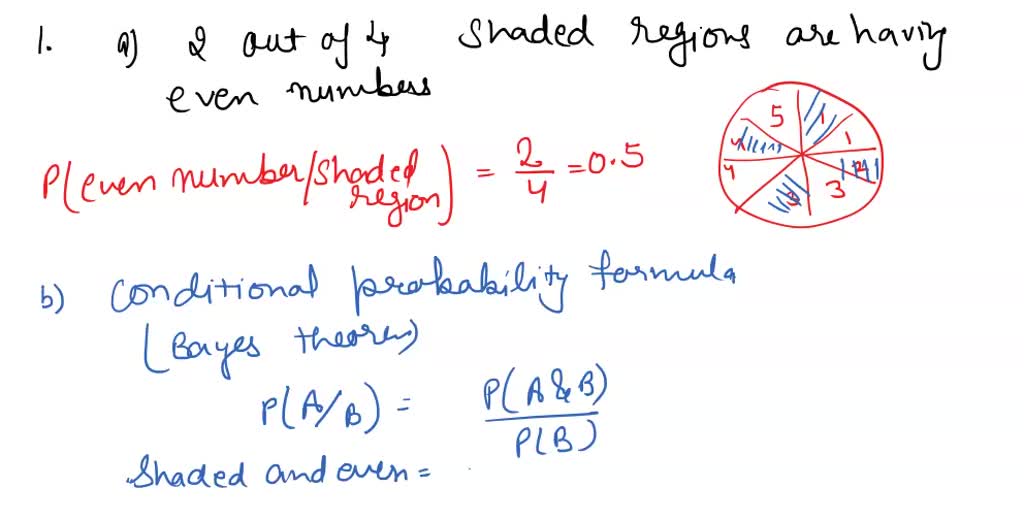 1. a) 2 out of 4 shaded regions are having
even numbers
P(even number/shaded region) = 2/4 = 0.5
5 1
1
4
4
3
3
b) Conditional probability formula
(Bayes theorem)
P(A/B) = P(A&B)/P(B)
Shaded and even =